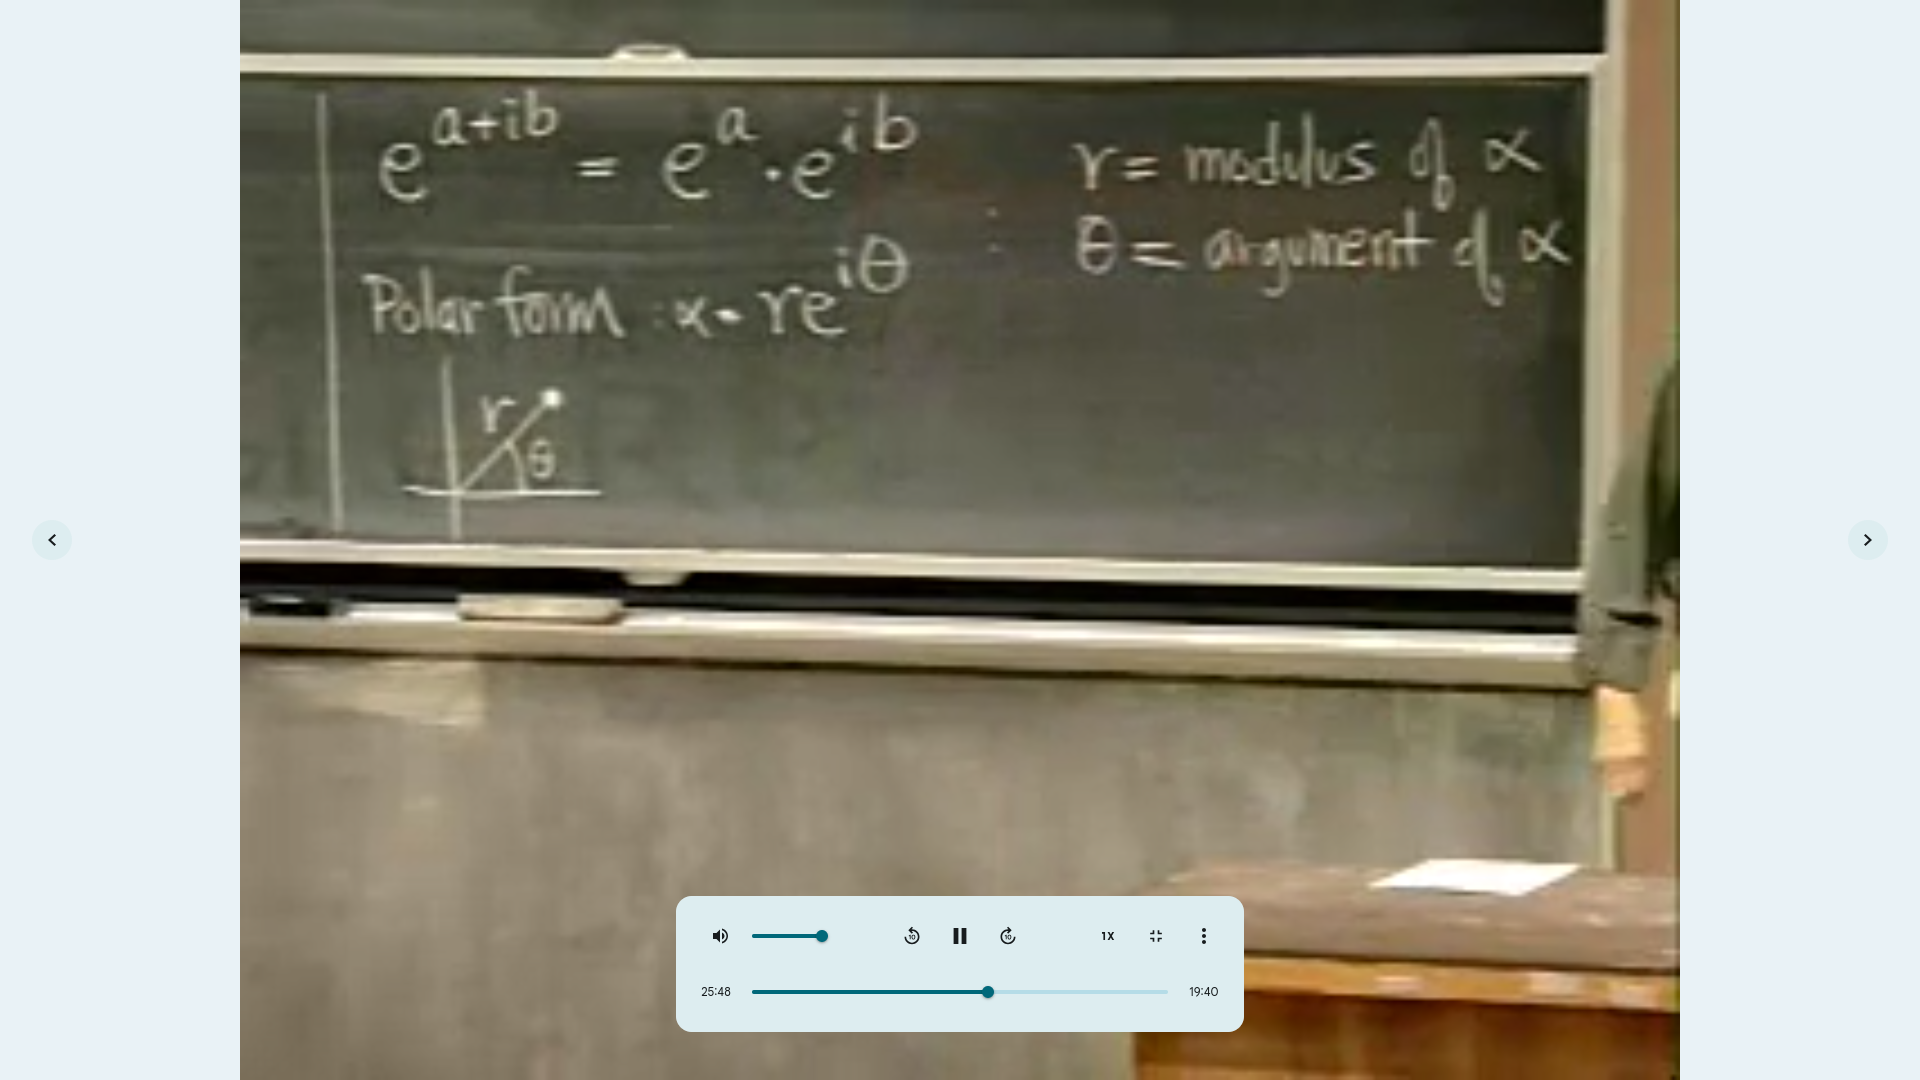 e^{a+ib} = e^a · e^{ib}
Polar form : α = re^{iθ}
r
θ
r = modulus of α
θ = argument of α
10
10
1X
25:48
19:40